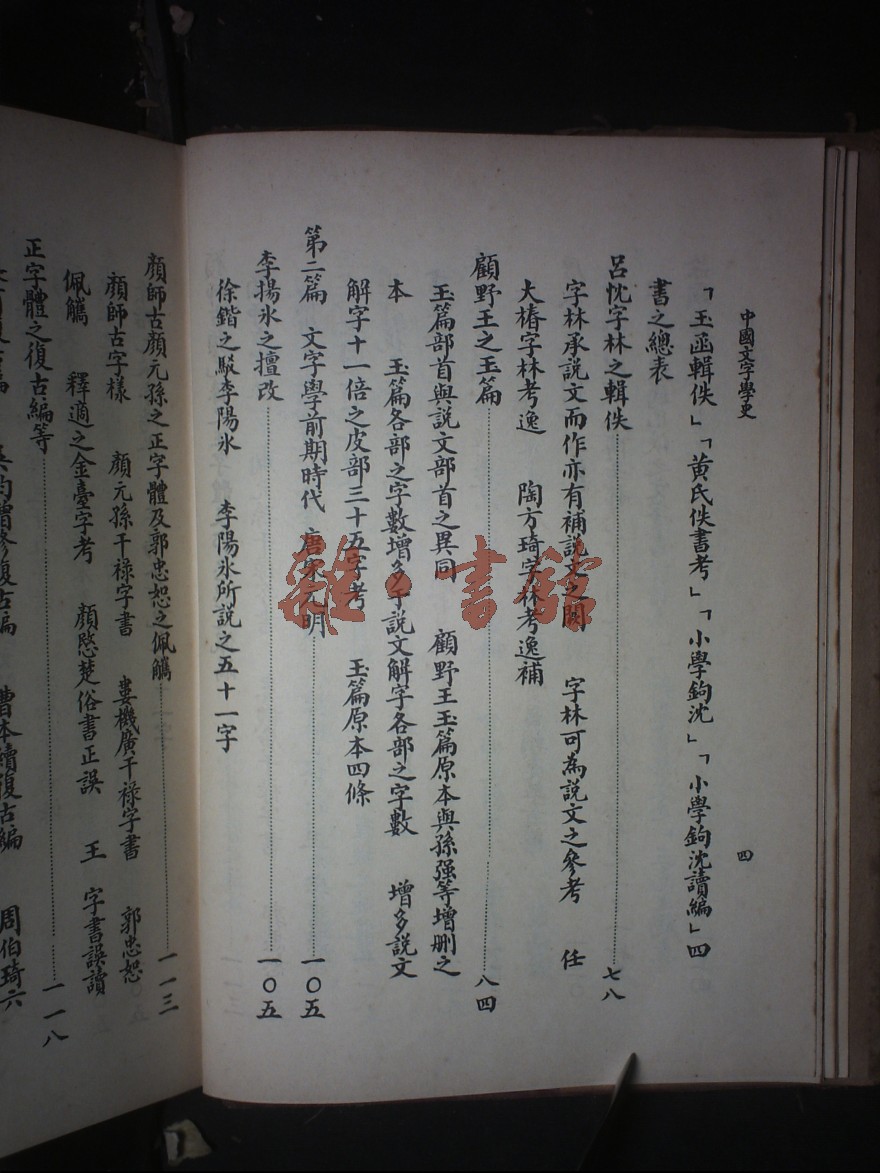 中國文字學史
四
「玉函輯佚」「黃氏佚書考」「小學鉤沈」「小學鉤沈讀編」四
書之總表
呂忱字林之輯佚七八
字林承說文而作亦有補說文之闕 字林可為說文之參考 任
大椿字林考逸 陶方琦字林考逸補
顧野王之玉篇八四
玉篇部首與說文部首之異同 顧野王玉篇原本與孫强等增删之
本 玉篇各部之字數增多于說文解字各部之字數 增多說文
解字十一倍之皮部三十五字考 玉篇原本四條
第二篇 文字學前期時代 唐宋元明一〇五
李揚氷之擅改一〇五
徐鍇之駁李陽氷 李陽氷所說之五十一字
顏師古顏元孫之正字體及郭忠恕之佩觿一一三
顏師古字樣 顏元孫干祿字書 婁機廣干祿字書 郭忠恕
佩觿 釋適之金臺字考 顏愍楚俗書正誤 王 字書誤讀
正字體之復古編等一一八
增修復古編 曹本續復古編 周伯琦六
雜·書館